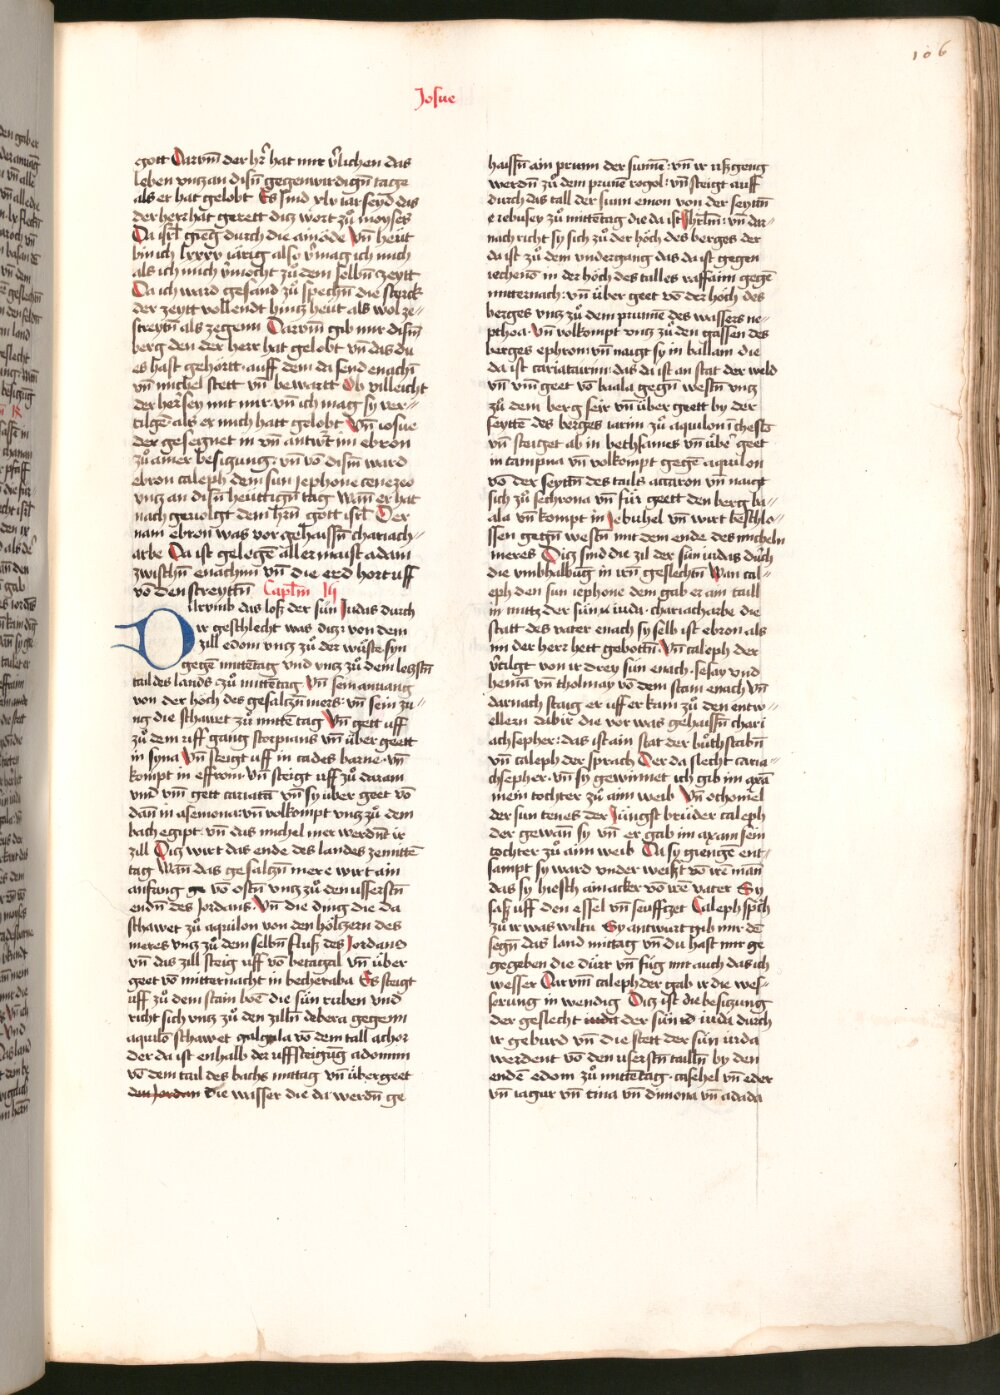 106
Josue
gott Darum̄ der hr̄ hat mir v̄lichen das
leben vntz an disn̄ gegenwirdign̄ tage
als er hat gelobt Es sind xlv iar seyd das
der herr hat gerett ditz wort zů moyses
Da isrl̄ gieng durch die ainöde Vn̄ heüt
bin ich lxxxv iärig also v̄mag ich mich
als ich mich v̄mocht zů dem selbn̄ zeytt
Da ich ward gesand zů spechn̄ die sterck
der zeytt vollendt hintz heut als wol ze
streytn̄ als ze genn Darum̄ gib mir disn̄
berg den der herr hat gelobt vn̄ das du
es hast gehörtt auff dem da send enachī
vn̄ michel stett vn̄ bewartt Ob villeicht
der herr sey mit mir vn̄ ich mag sy ver
tilgē als er mich hatt gelobt Vn̄ iosue
der gesegnet in vn̄ antwrt im ebron
zů ainer besitzung vn̄ vō disn̄ ward
ebron caleph dem sun iephone cenezeo
vntz an disn̄ heüttign̄ tag Wan̄ er hat
nach geuolgt dem hrn̄ gott isrl̄ Der
nam ebron was vor gehaissn̄ chariach
arbe Da ist gelegē aller maist adam
zwischn̄ enachim vn̄ die erd hort uff
vō den streyttn̄ Caplm̄
Darumb das loß der sün Judas durch
ir geschlecht was ditz von dem
zill edom vntz zů der wüste syn
gegē mittētag vnd vntz zů dem letzstn̄
tail des lands zů mittētag Vn̄ sein anuang
von der höch des gesaltzn̄ mers vn̄ sein zu
ng die schawet zů mittē tag Vn̄ gett uff
zů dem uff gang scorpians vn̄ über geett
in syna Vn̄ steigt uff in cades barne vn̄
kompt in effrom vn̄ steigt uff zů daram
vnd vm̄ gett cariatā vn̄ sy über geet vō
dān in asemona vn̄ volkompt vntz zů dem
bach egipt vn̄ das michel mer werdn̄t ir
zill Ditz wirt das ende des landes ze mittē
tag Wan̄ das gesaltzn̄ mere wirt ain
anfang vō ostn̄ vntz zů den usserstn̄
endn̄ des Jordans Vn̄ die ding die da
schawet zů aquilon von den höltzern des
meres vntz zů dem selbn̄ fluß des Jordans
vn̄ das zill steig uff vō betaizal vn̄ über
geet vō mitternacht in becheraba Es steigt
uff zů dem stain boē die sün ruben vnd
richt sich vntz zů den zilln̄ debera gegenn
aquilō schawet galgala vō dem tall achor
der da ist enhalb der uffsteigūg adomim
vō dem tail des bachs mittag vn̄ über geet
den Jordan Die wasser die da werdn̄ ge
haissn̄ ain prunn der sunnē vn̄ ir ußgeng
werdn̄ zů dem prunē rogol vn̄ steigt auff
durch das tall der sunn emon von der seyttn̄
e iebusey zů mittētag die da ist Jhrlm̄ vn̄ dar
nach richt sy sich zů der höch des berges der
da ist zů dem vndergang das da ist gegen
iechenō in der höch des talles raffaim gegē
mitternach vn̄ über geet vō der höch des
berges vntz zů dem prunnē des wassers ne
pthoa vn̄ volkompt vntz zů den gassen des
berges ephron vn̄ naigt sy in ballam die
da ist cariataurim das da ist an stat der weld
vn̄ vm̄ geet vō baala gegn̄ westn̄ vntz
zů dem berg seir vn̄ über geett by der
seyttē des berges iarim zů aquilon ī cheslō
vn̄ staiget ab in bethsames vn̄ über geet
in tampna vn̄ volkompt gegē aquilon
vō der seyttn̄ des tails accaron vn̄ naigt
sich zů sechrona vn̄ für geett den berg ba
ala vn̄ kompt in Jebuhel vn̄ wirt beschlo
ssen gegn̄ westn̄ mit dem ende des micheln
meres Ditz sind die zil der sün iudas durch
die vmbhalbūg in irn̄ geslechtn̄ Wan cal
eph den sun iephone dem gab er ain taill
in mittz der sün iuda chariacharbe die
statt des vater enach sy selb ist ebron als
im der herr hett gebottn̄ Vn̄ caleph der
v̄tilgt von ir drey sün enach sesay vnd
hemā vn̄ tholmay vō dem stam enach vn̄
darnach staig er uff er kam zů den entw
ellern dabir die vor was gehaissn̄ chari
achsepher das ist ain stat der bůchstabn̄
vn̄ caleph der sprach Der da slecht caria
chsepher vn̄ sy gewinnet ich gib im axā
mein tochter zů aim weib Vn̄ othoniel
der sun cenes der Jüngst brüder caleph
der gewan̄ sy vn̄ er gab im axam sein
tochter zů aim weib Da sy giengē ent
sampt sy ward vnder weißt vō irē man
das sy hiesch ain acker vō irē vater Sy
saß uff den essel vn̄ seufftzet Caleph sp̄ch
zů ir was wiltu Sy antwurt gib mir dē
segn̄ das land mittag vn̄ du hast mir ge
gegeben die dürr vn̄ füg mir auch das ich
wesser Darum̄ caleph der gab ir die wes
serung in wendig Ditz ist die besitzung
der geslecht iuda der sün iuda durch
ir geburd vn̄ die stett der sün iuda
werdent vō den usserstn̄ tailln̄ by den
endē edom zů mittētag caseel vn̄ eder
vn̄ iagur vn̄ cina vn̄ dimona vn̄ adada